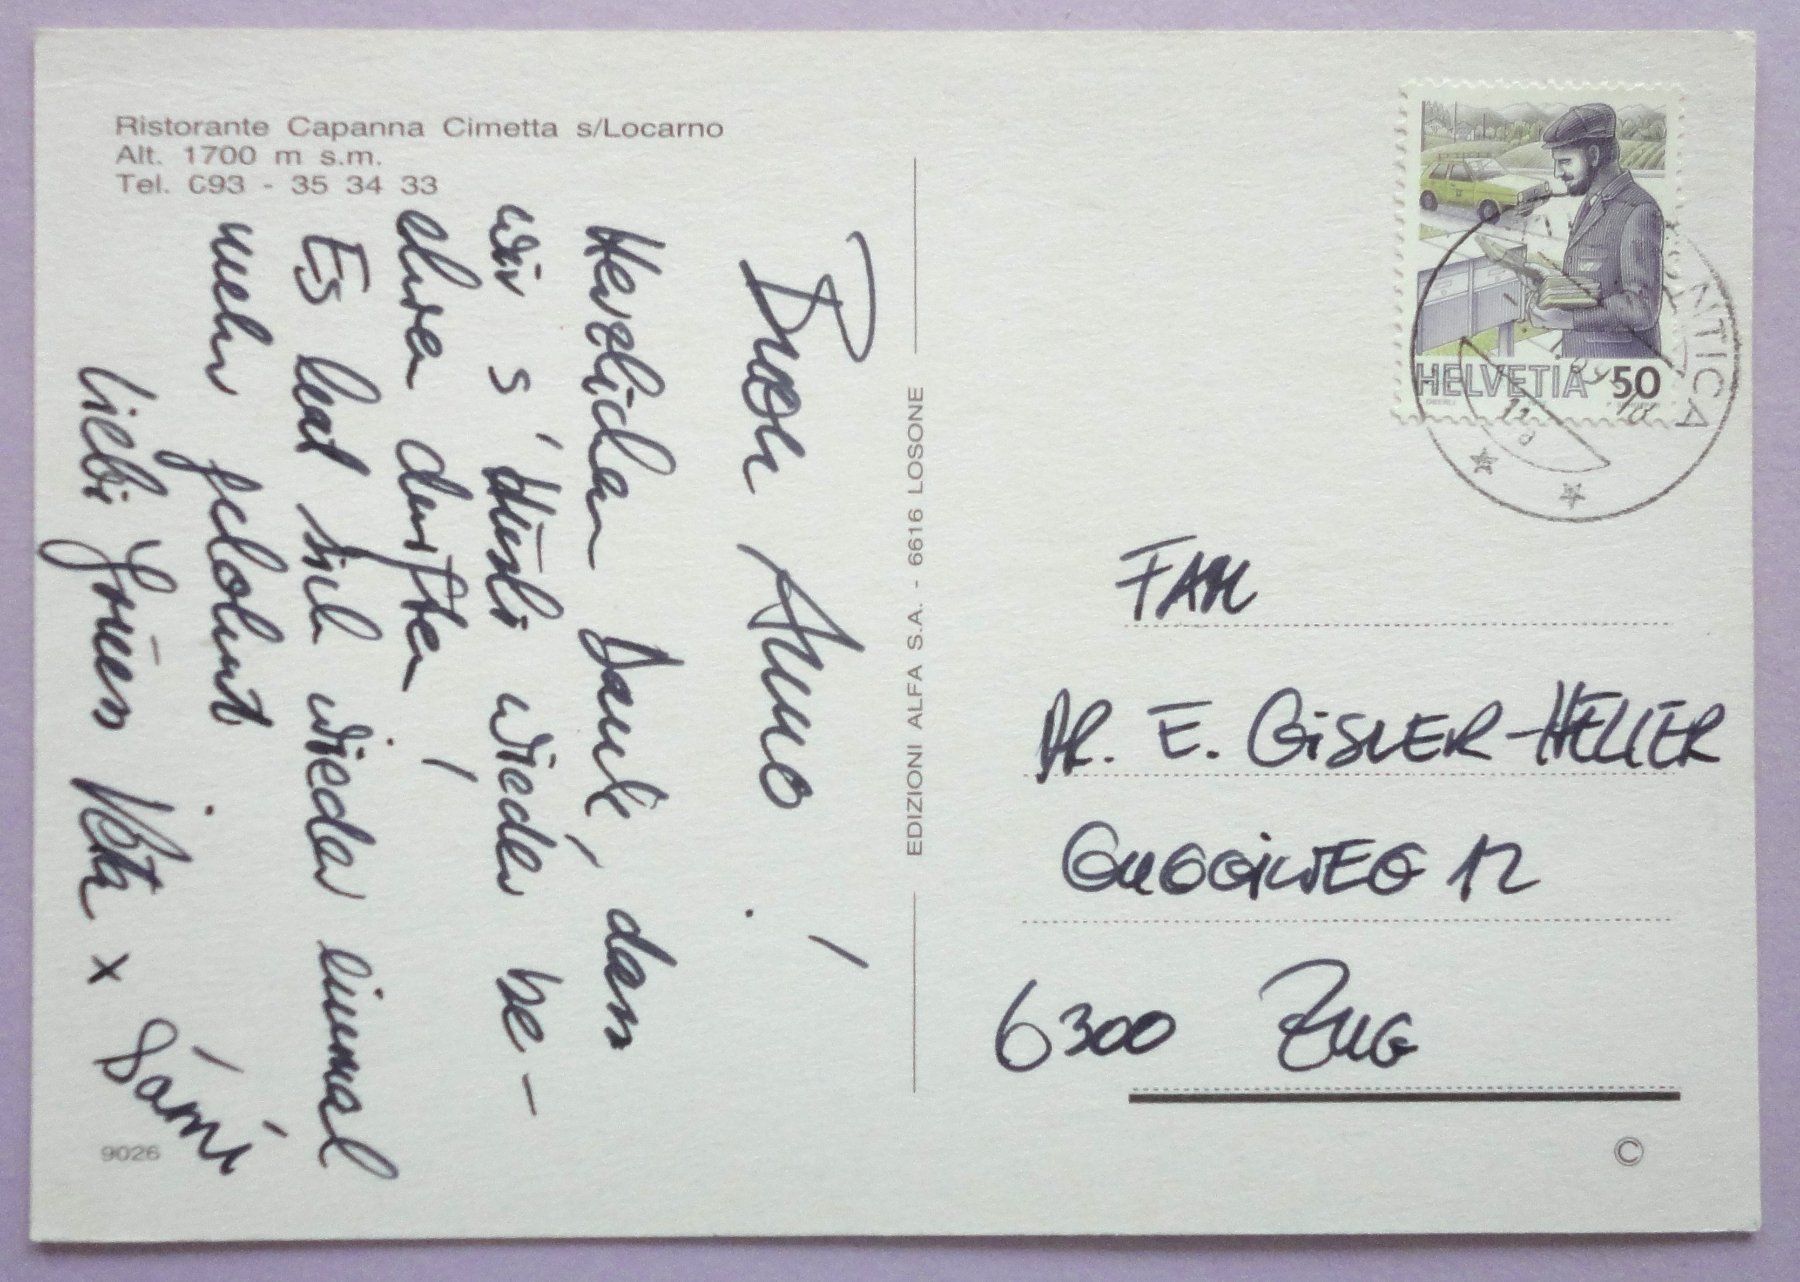 Ristorante Capanna Cimetta s/Locarno
Alt. 1700 m s.m.
Tel. 093 - 35 34 33
Buon Anno!
Herzlichen Dank, dass
wir s'Hüsli wieder be-
 durften!
Es hat sich wieder einmal
mehr gelohnt.
Liebi Grüess Vita x Sämi
9026
EDIZIONI ALFA S.A. - 6616 LOSONE
HELVETIA 50
FAM
DR. E. GISLER-HELLER
GUGGIWEG 12
6300 ZUG
©